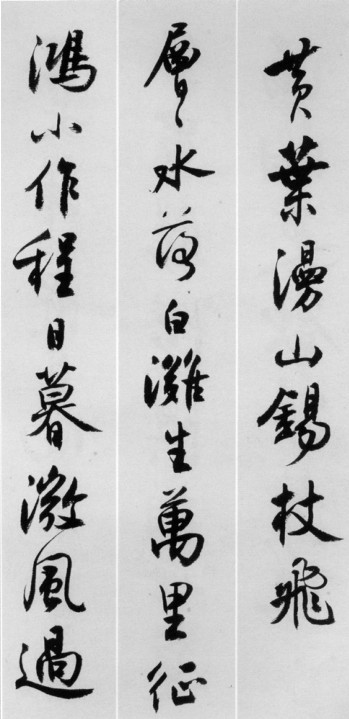 黄葉漫山錫杖飛
層〻水落白灘生萬里征
鴻小作程日暮微風過